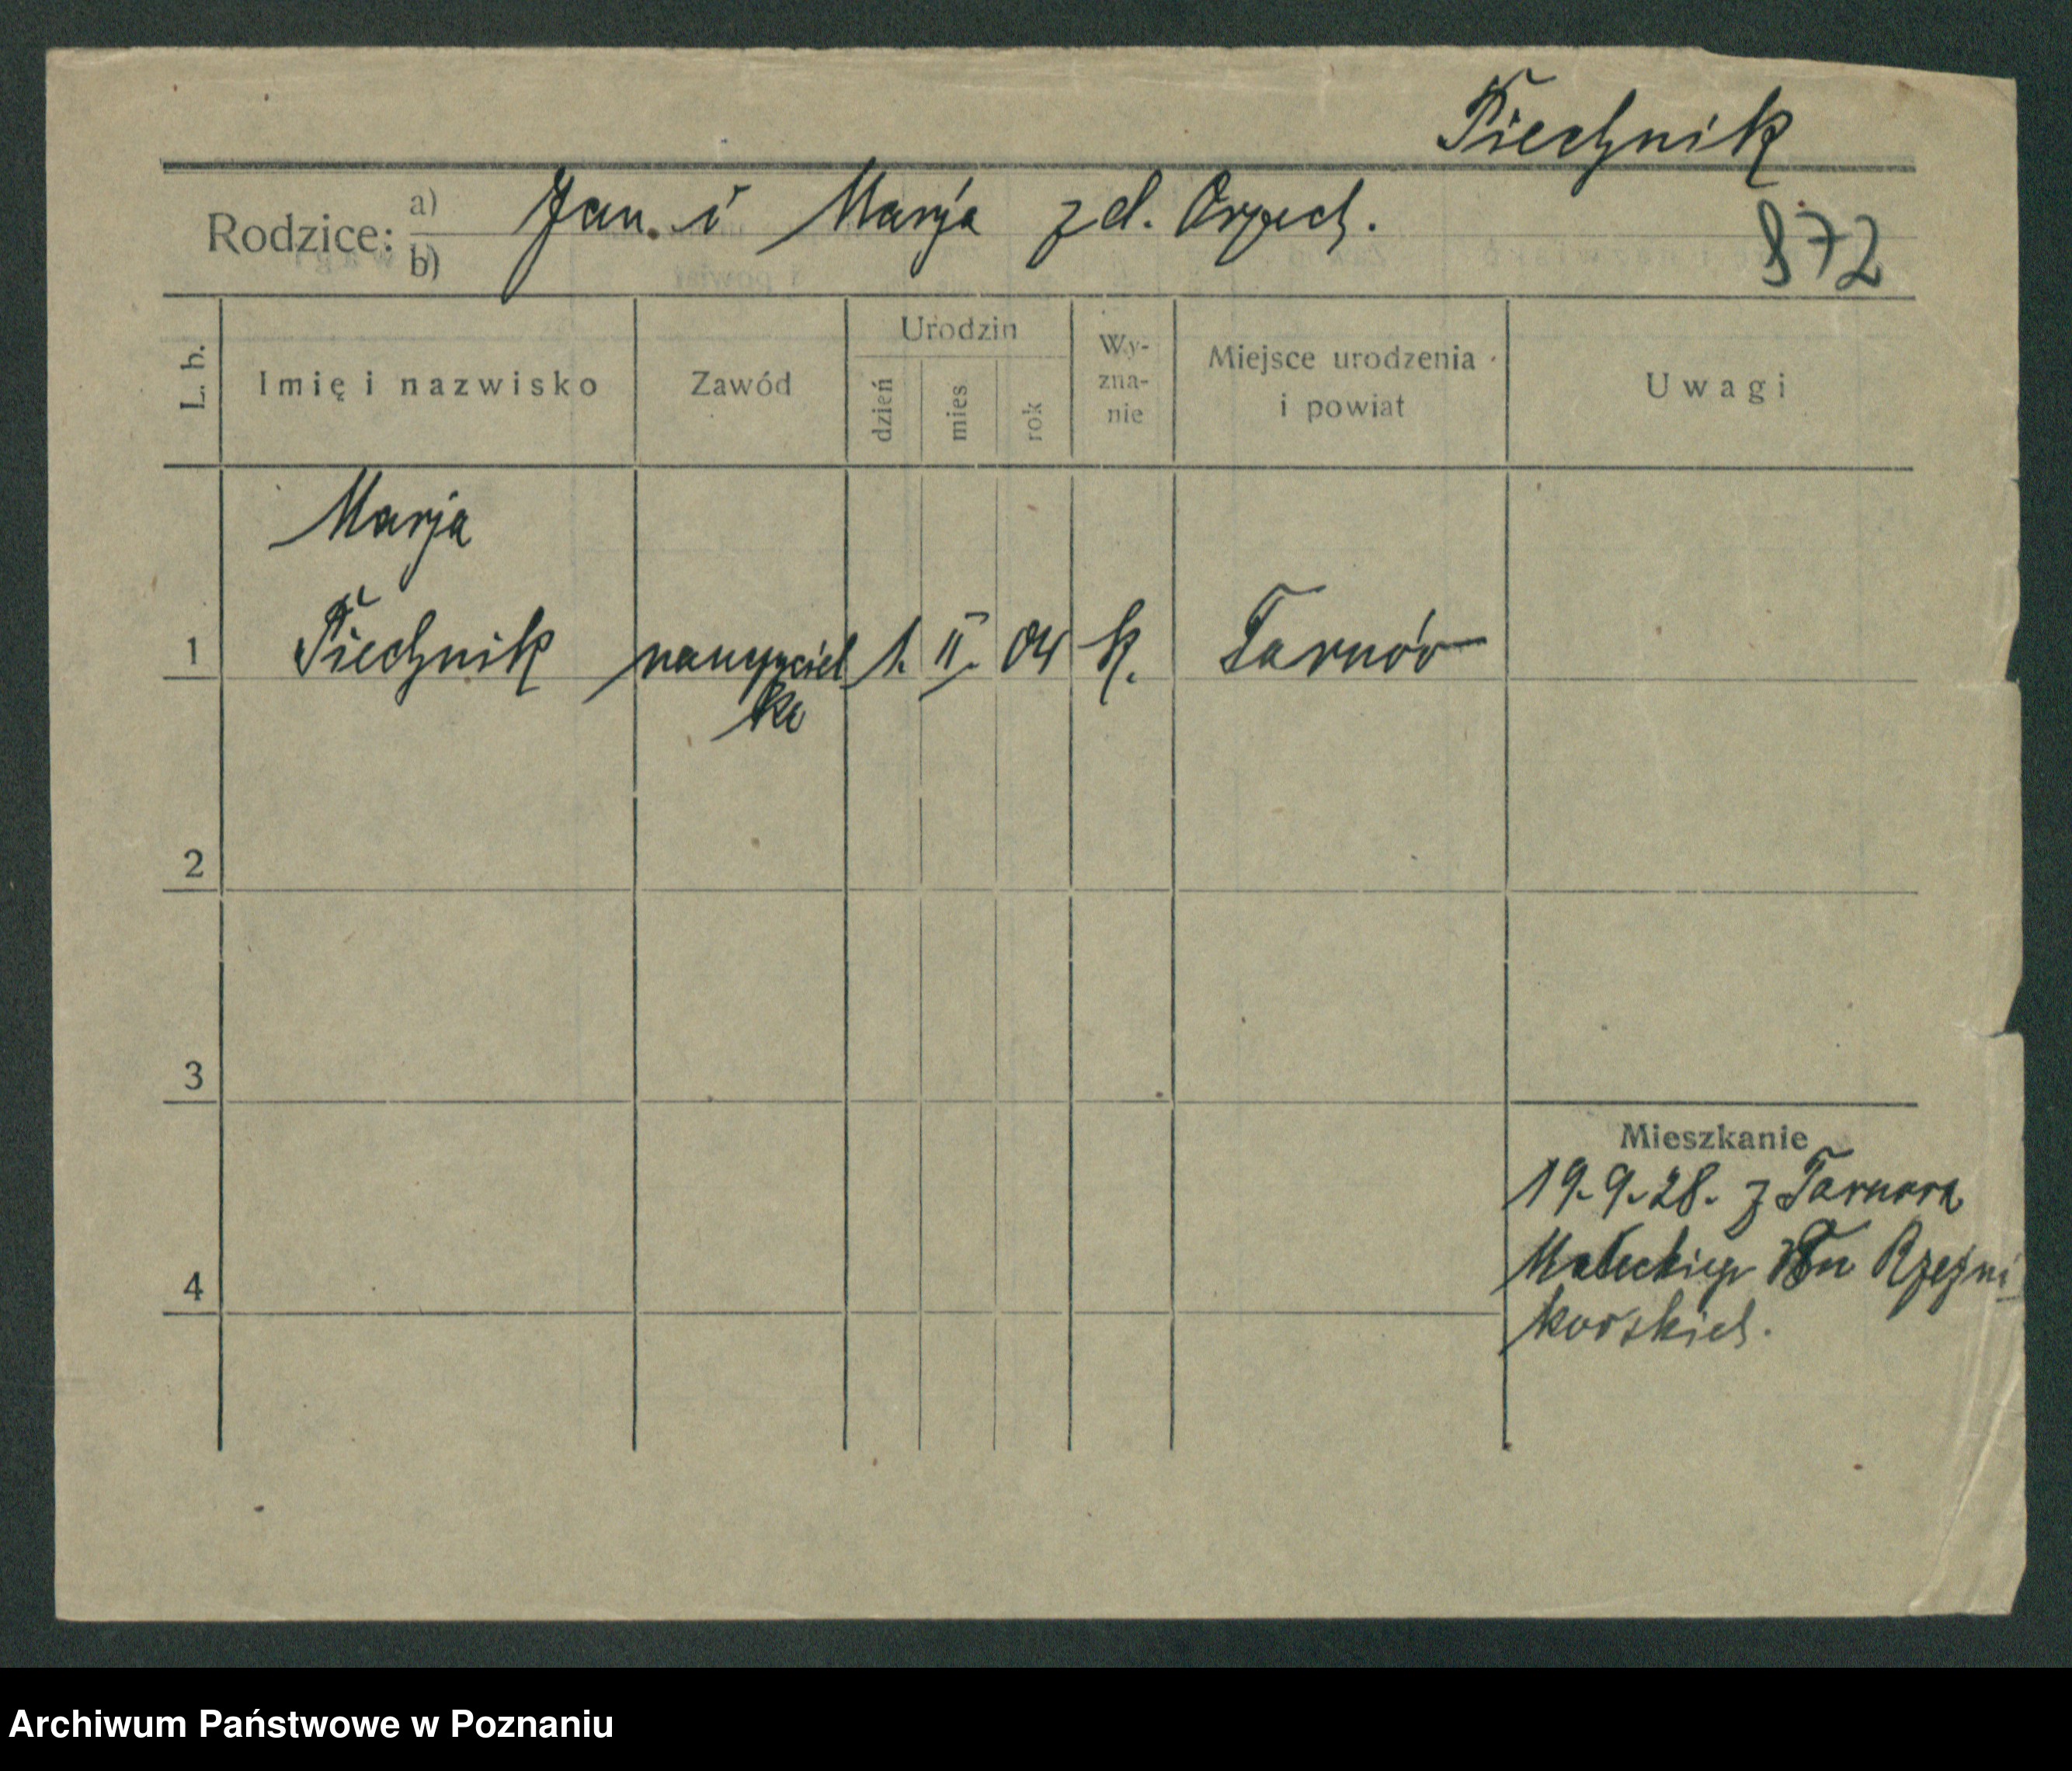 Piechnik
Rodzice: a) Jan i Marja z d. Orzech.
b)
872
L. b.
Imię i nazwisko
Zawód
Urodzin
dzień
mies
rok
Wy-
zna-
nie
Miejsce urodzenia
i powiat
Uwagi
Marja
1 Piechnik nauczyciel 1. II. 04 k. Tarnów
ka
2
3
4
Mieszkanie
19.9.28. z Tarnowa
Małeckiego Rzeźni
korskich.
Archiwum Państwowe w Poznaniu